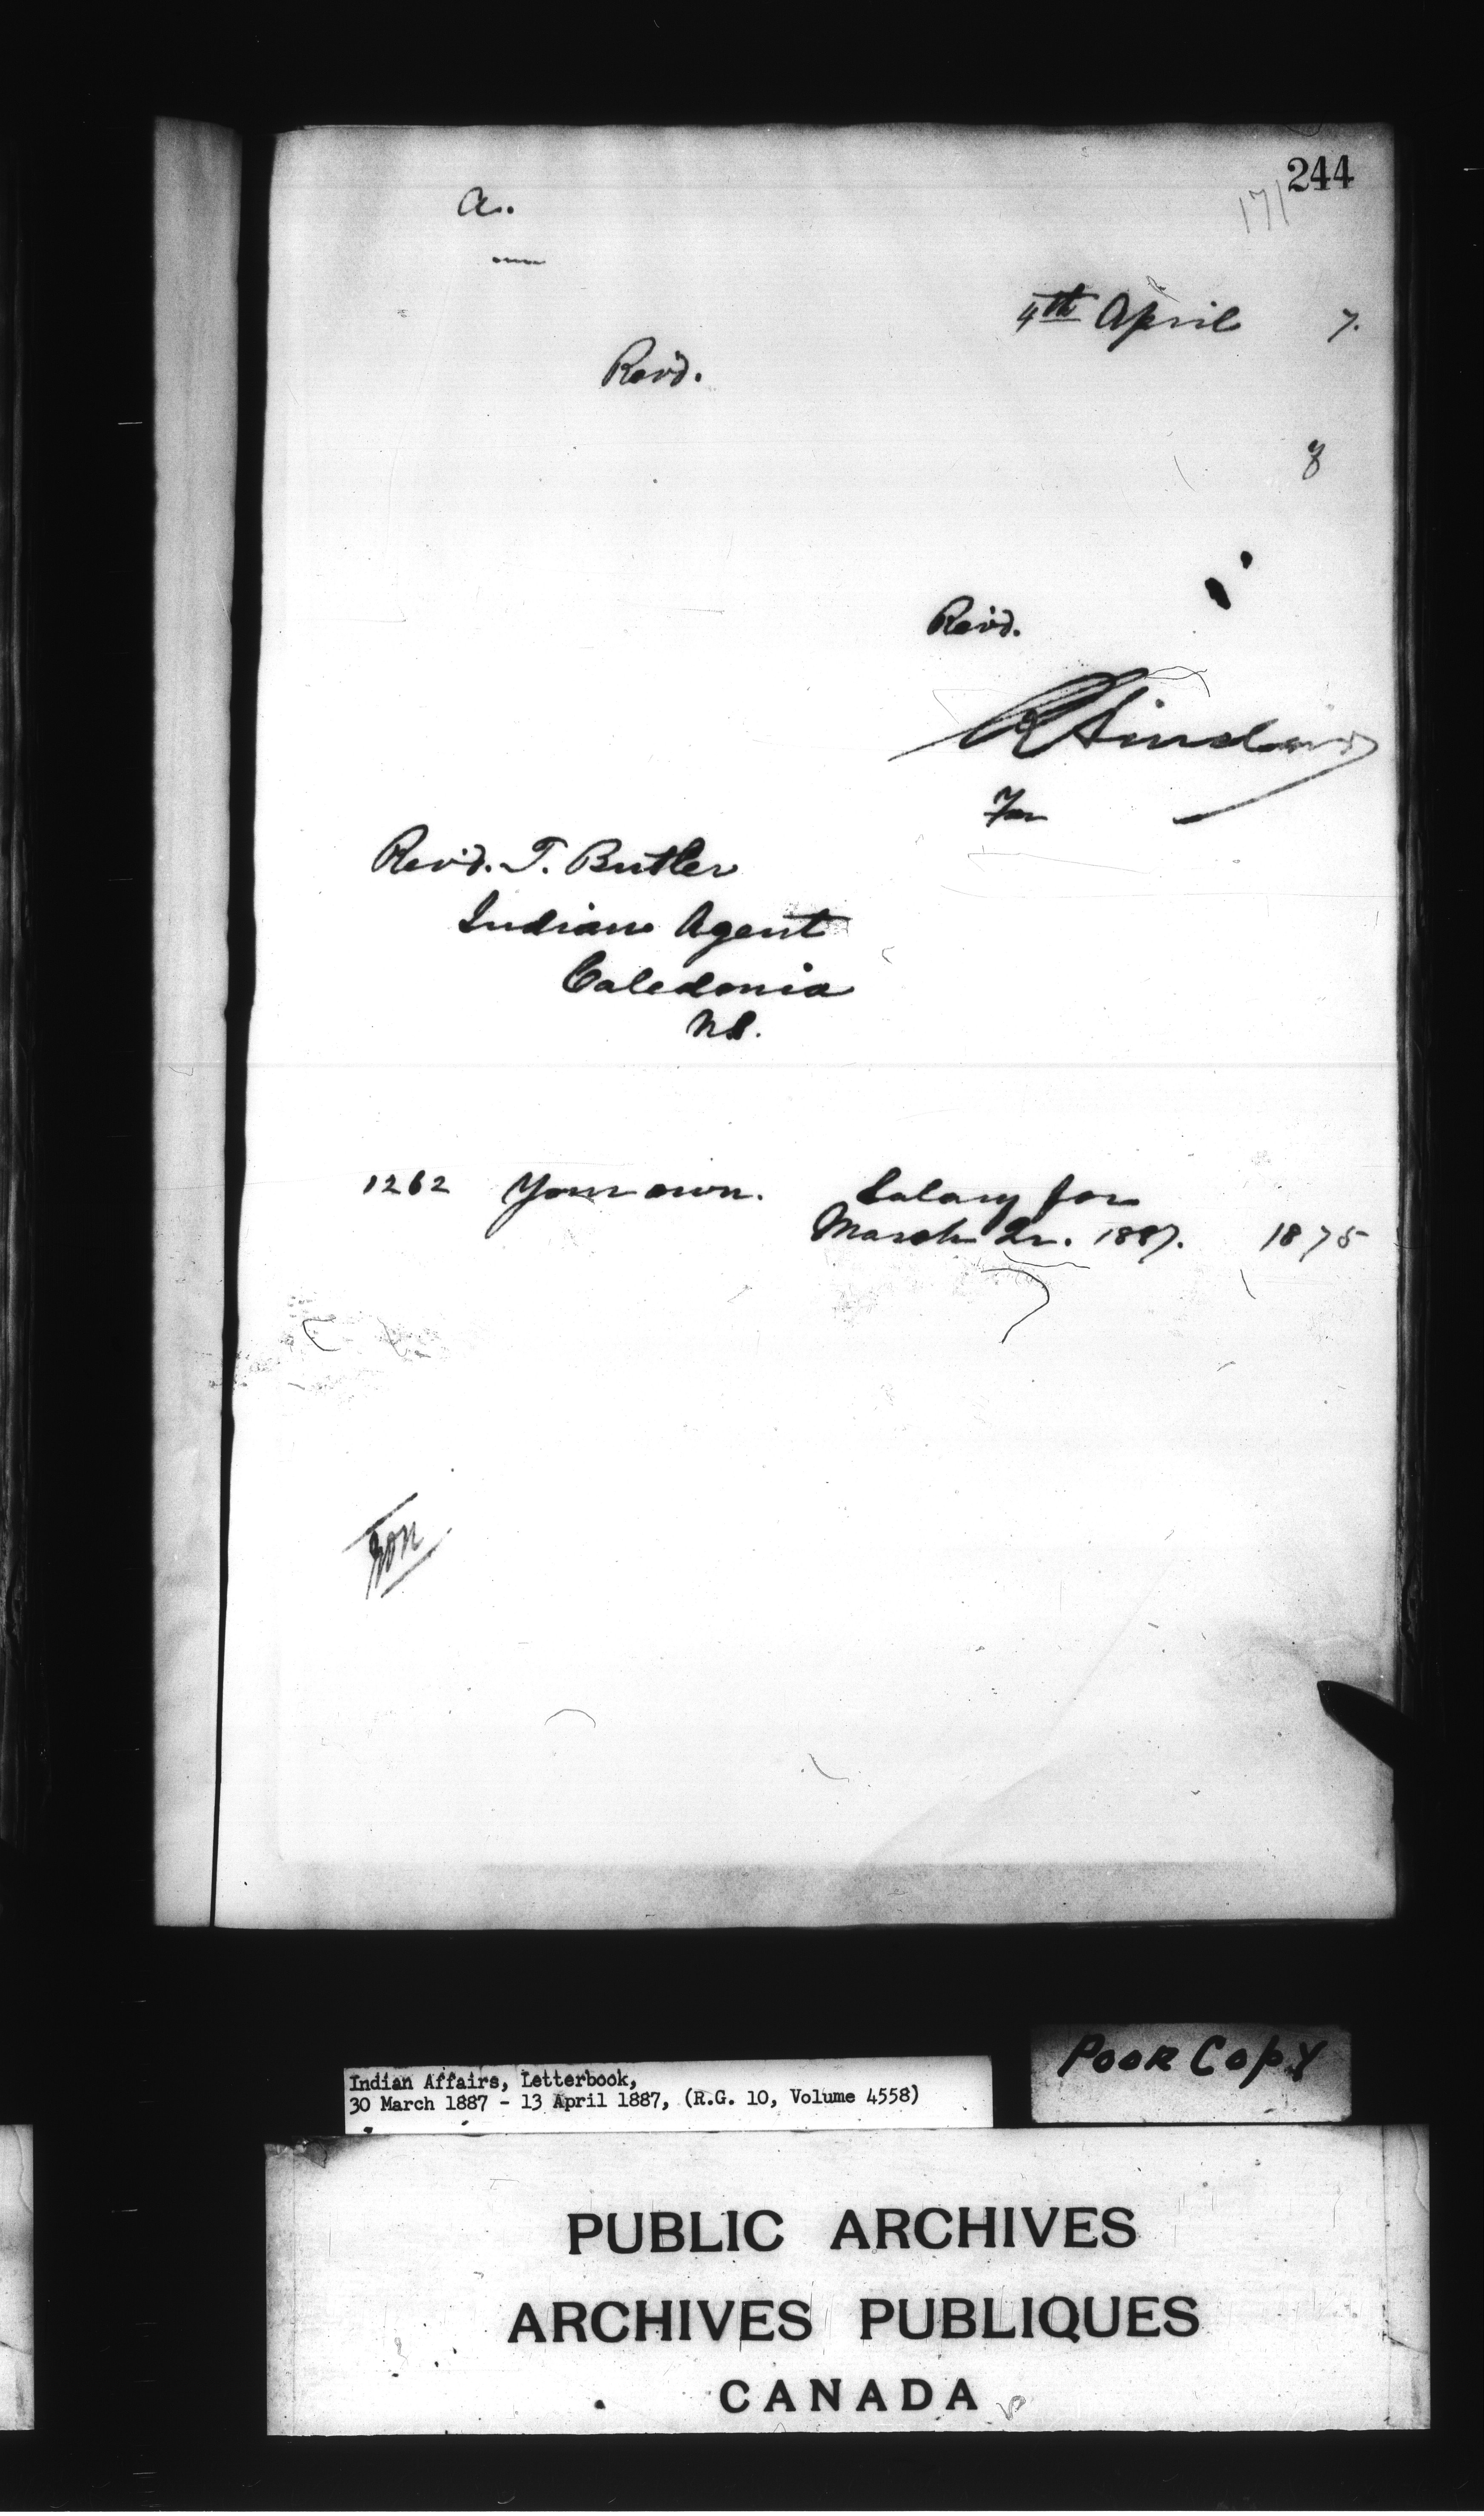 244
171
a.
4th April 7.
Rev'd.
Rev'd.
R Sinclair
For
Rev'd. T. Butler
Indian Agent
Caledonia
N.S.
1262 Your own. Salary for
March Qr. 1887. 18 75
Indian Affairs, Letterbook,
30 March 1887 - 13 April 1887, (R.G. 10, Volume 4558)
POOR COPY
PUBLIC ARCHIVES
ARCHIVES PUBLIQUES
CANADA